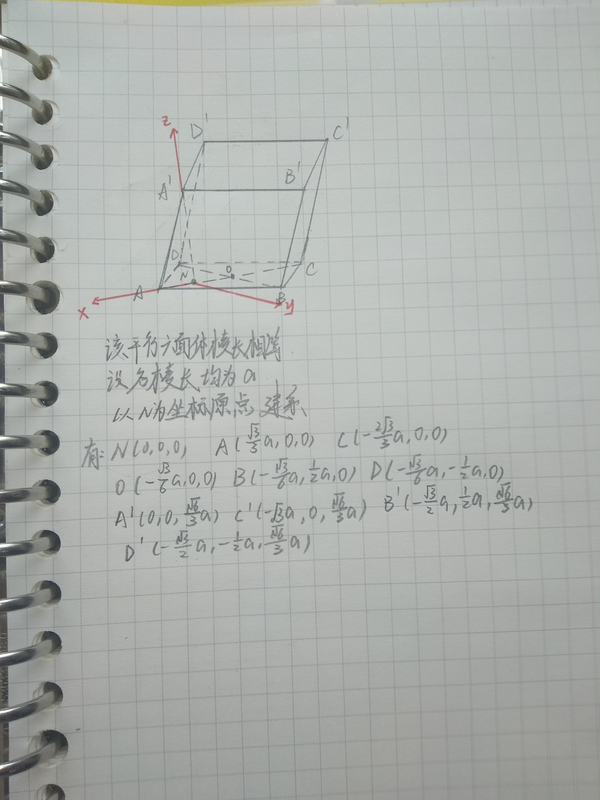 z
D'
C'
A'
B'
D
O
C
N
A
B
x
y
该平行六面体棱长相等
设各棱长均为a
以N为坐标原点 建系
有: N(0,0,0) A(√3/3a,0,0) C(-2√3/3a,0,0)
O(-√3/6a,0,0) B(-√3/6a,1/2a,0) D(-√3/6a,-1/2a,0)
A'(0,0,√6/3a) C'(-√3a,0,√6/3a) B'(-√3/2a,1/2a,√6/3a)
D'(-√3/2a,-1/2a,√6/3a)